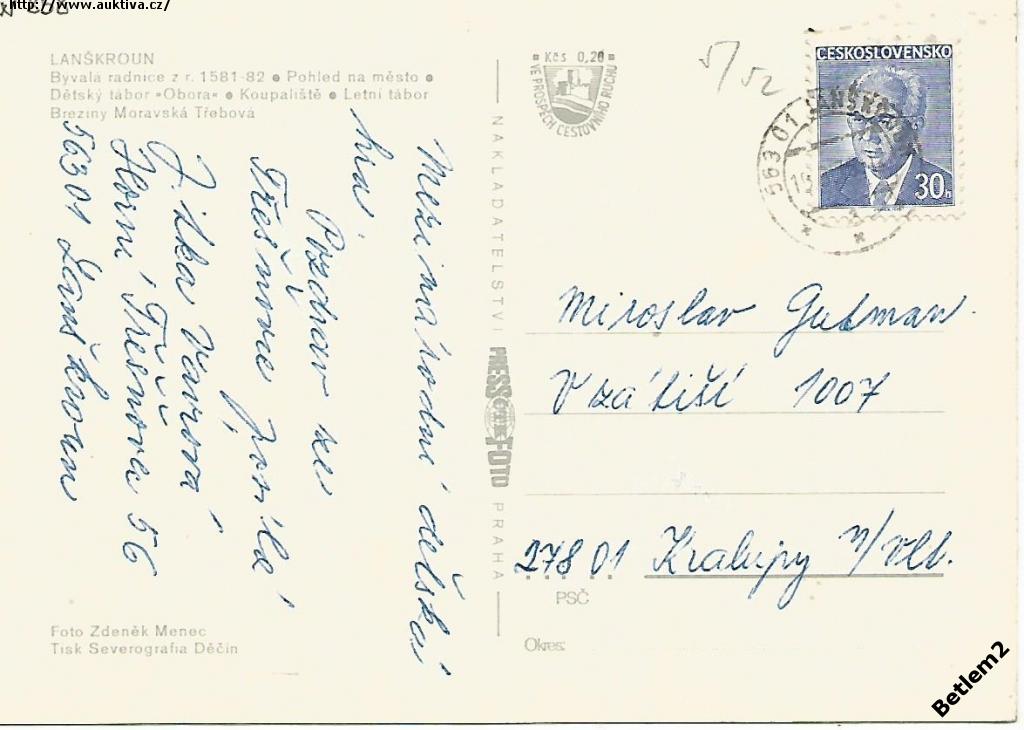 http://www.auktiva.cz/
LANŠKROUN
Bývalá radnice z r. 1581-82 ● Pohled na město ●
Dětský tábor »Obora« ● Koupaliště ● Letní tábor
Březiny Moravská Třebová
Mezinárodní dětská
hra
Pozdrav ze
Třešňovce posílá
Jitka Vávrová
Horní Třešňovec 56
563 01 Lanškroun
Foto Zdeněk Menec
Tisk Severografia Děčín
NAKLADATELSTVÍ PRESSFOTO PRAHA
Kčs 0,20
VE PROSPĚCH CESTOVNÍHO RUCHU
5/52
ČESKOSLOVENSKO
30h
563 01 LANŠKR
Miroslav Gutman
V zátiší 1007
278 01 Kralupy n/Vlt.
PSČ
Okres:
Betlem2